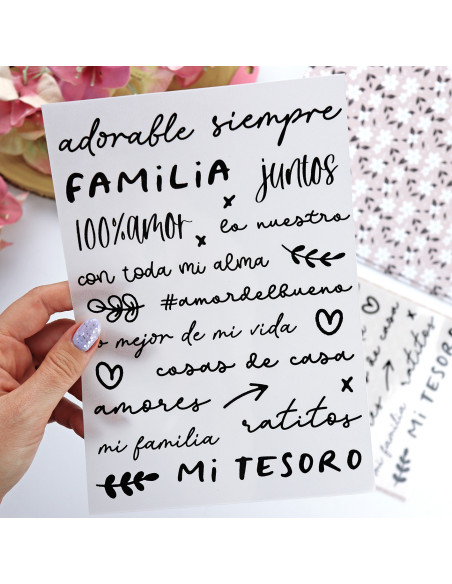 adorable siempre
FAMiLiA juntos
100%amor lo nuestro
con toda mi alma
#amordelbueno
lo mejor de mi vida
cosas de casa
amores ratitos
mi familia
Mi TESORO
de casa
ratitos
mi familia
Mi TESORO